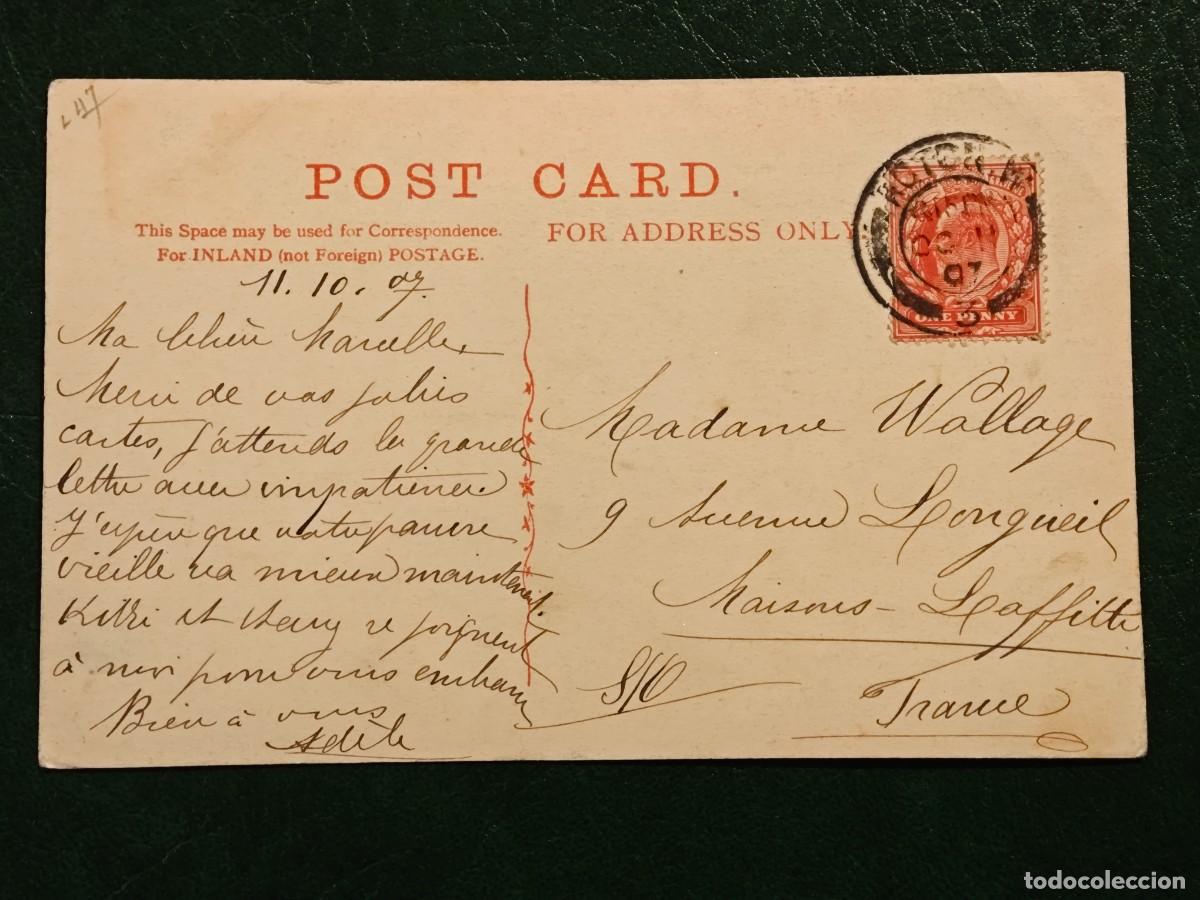 L 47
POST CARD.
This Space may be used for Correspondence.
For INLAND (not Foreign) POSTAGE.
FOR ADDRESS ONLY
ONE PENNY
OC 11
07
3
11. 10. 07.
Ma chère Marcelle,
Merci de vos jolies
cartes, j'attends la grande
lettre avec impatience.
J'espère que votre pauvre
vieille va mieux maintenant.
Kitri et se joignent
à moi pour vous embrasser
Bien à vous
Adèle
Madame Wallage
9 Avenue Longueil
Maisons-Laffitte
S/O
France
todocoleccion